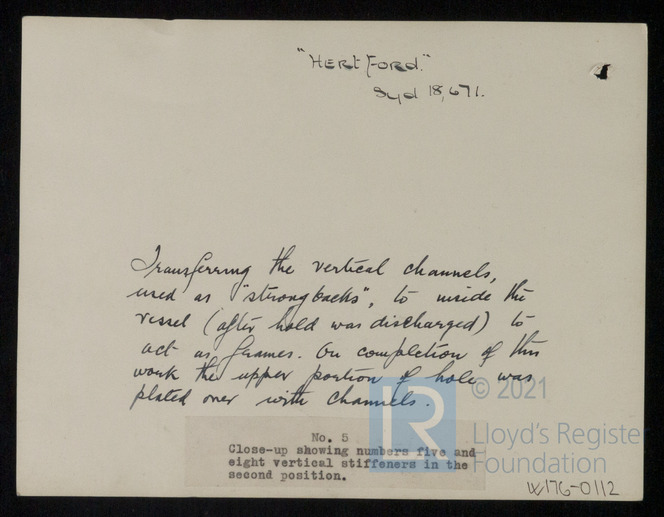 "Hertford."
Syd 18,671.
Transferring the vertical channels,
used as "strongbacks", to inside the
vessel (after hold was discharged) to
act as frames. On completion of this
work the upper portion of hole was
plated over with channels.
No. 5
Close-up showing numbers five and
eight vertical stiffeners in the
second position.
LR
© 2021
Lloyd's Register
Foundation
W176-0112